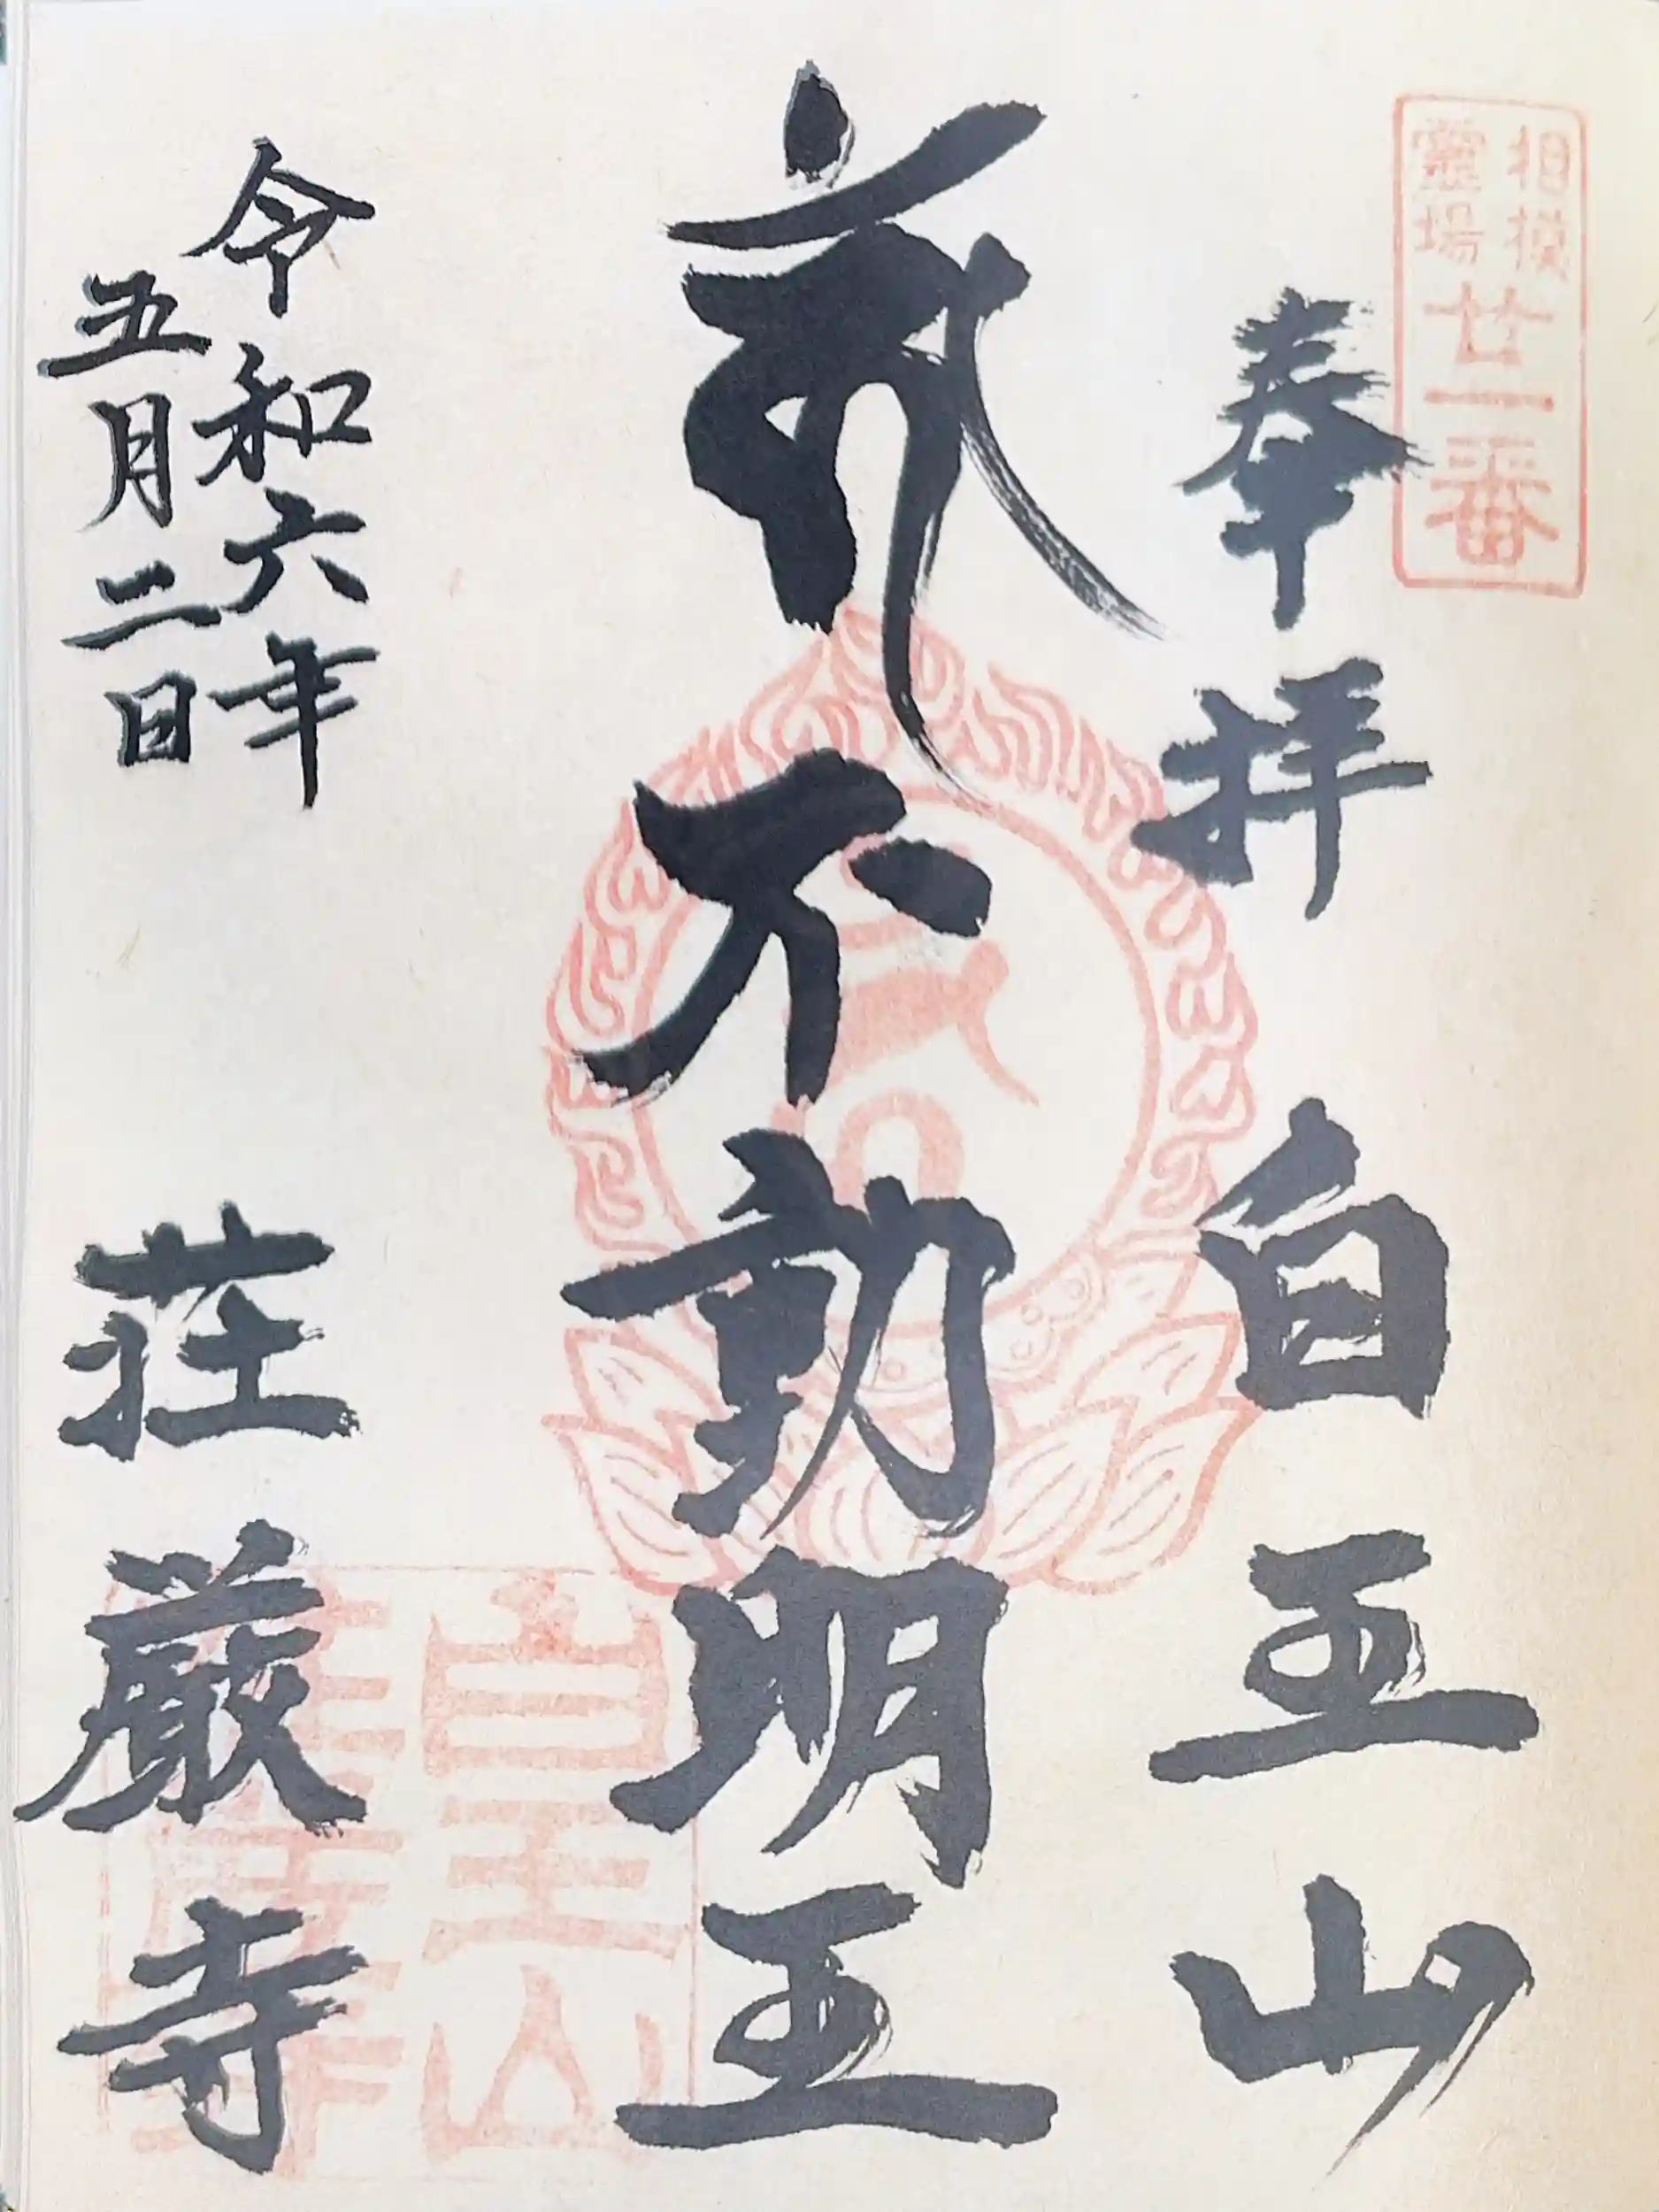 相模
霊場
廿一番
奉拝
白王山
不動明王
白王山
令和六年
五月二日
荘厳寺